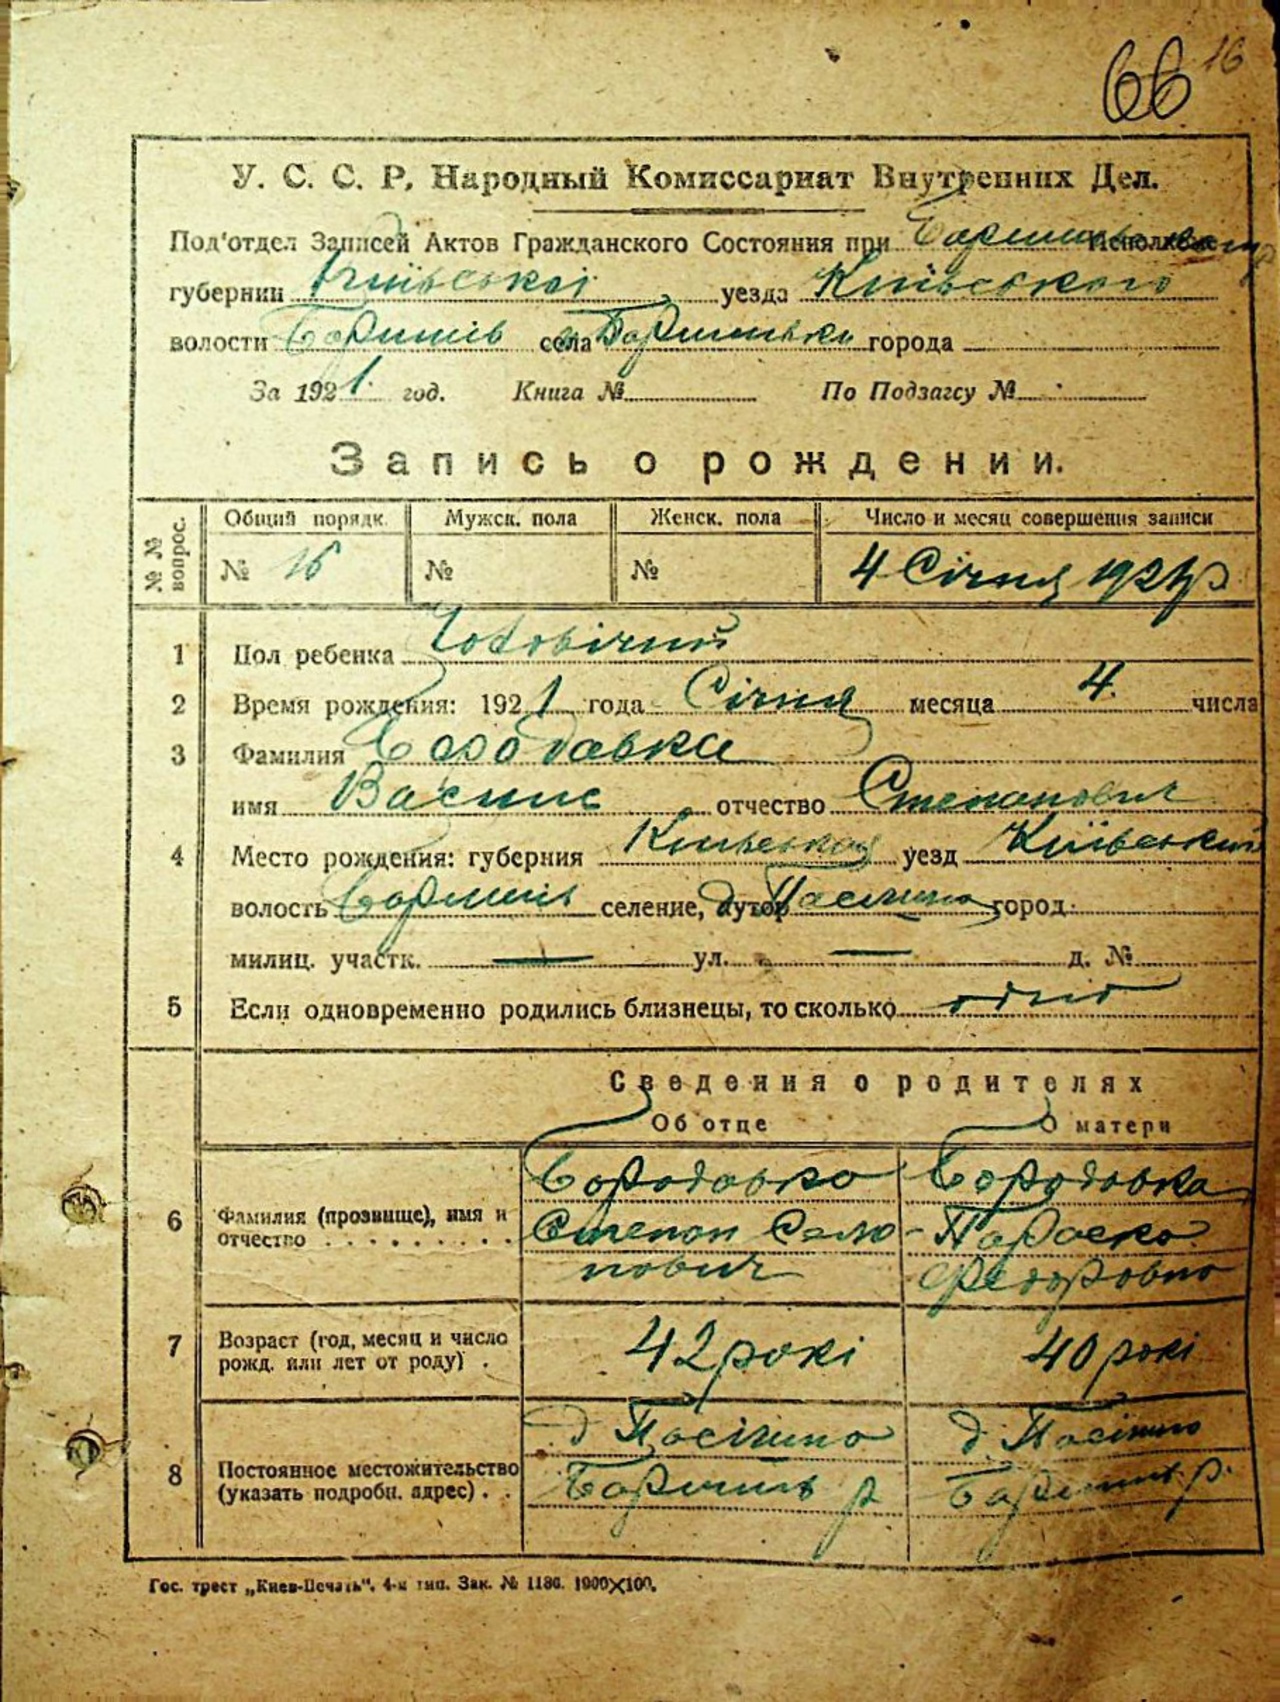 66 16
У. С. С. Р. Народный Комиссариат Внутренних Дел.
Под'отдел Записей Актов Гражданского Состояния при
губернии Київської уезда Київського
волости села города
За 1921 год. Книга № По Подзагсу №
Запись о рождении.
№№ вопрос. Общий порядк. Мужск. пола Женск. пола Число и месяц совершения записи
№ 16 № № 4 Січня 1921 р
1 Пол ребенка Чоловічий
2 Время рождения: 1921 года Січня месяца 4 числа
3 Фамилия Бородавка
имя Василь отчество Степанович
4 Место рождения: губерния Київская уезд Київський
волость селение, хутор город
милиц. участк. — ул. — д. №
5 Если одновременно родились близнецы, то сколько одно
Сведения о родителях
Об отце О матери
6 Фамилия (прозвище), имя и отчество . . . . . . . . .
Бородавка Бородавка
Степан Параска
Федоровна
7 Возраст (год, месяц и число рожд. или лет от роду) . 42 рокі 40 рокі
8 Постоянное местожительство (указать подробн. адрес) . .
Гос. трест „Киев-Печать“. 4-я тип. Зак. № 1186. 1000×100.